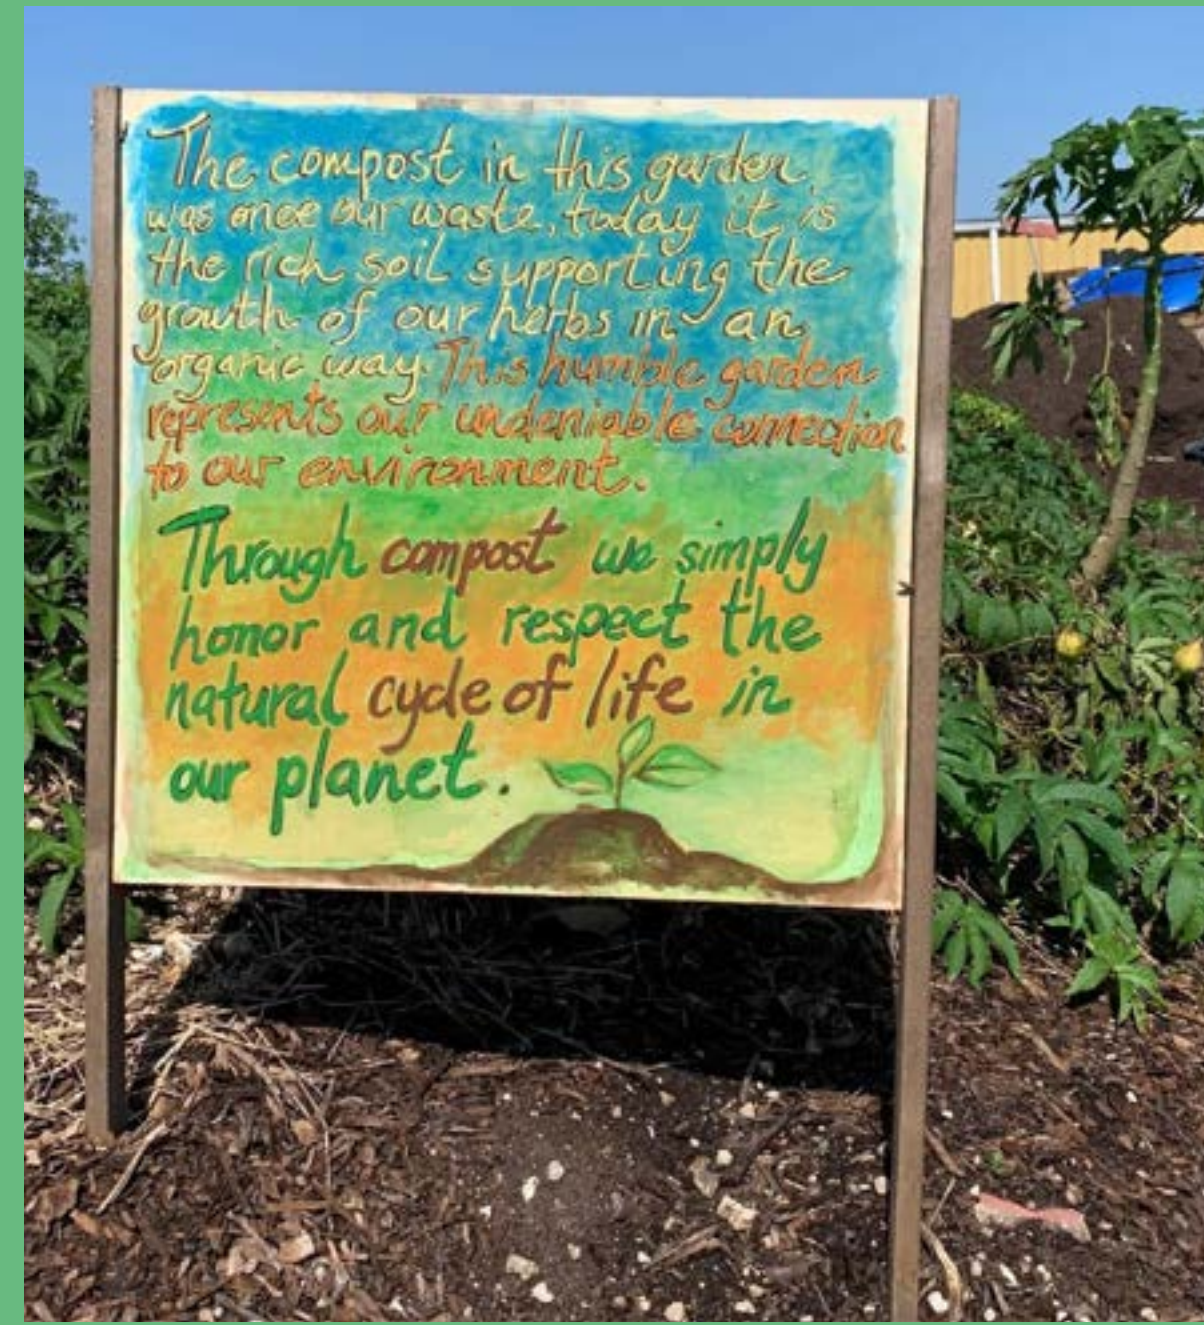 The compost in this garden
was once our waste, today it is
the rich soil supporting the
growth of our herbs in an
organic way. This humble garden
represents our undeniable connection
to our environment.
Through compost we simply
honor and respect the
natural cycle of life in
our planet.